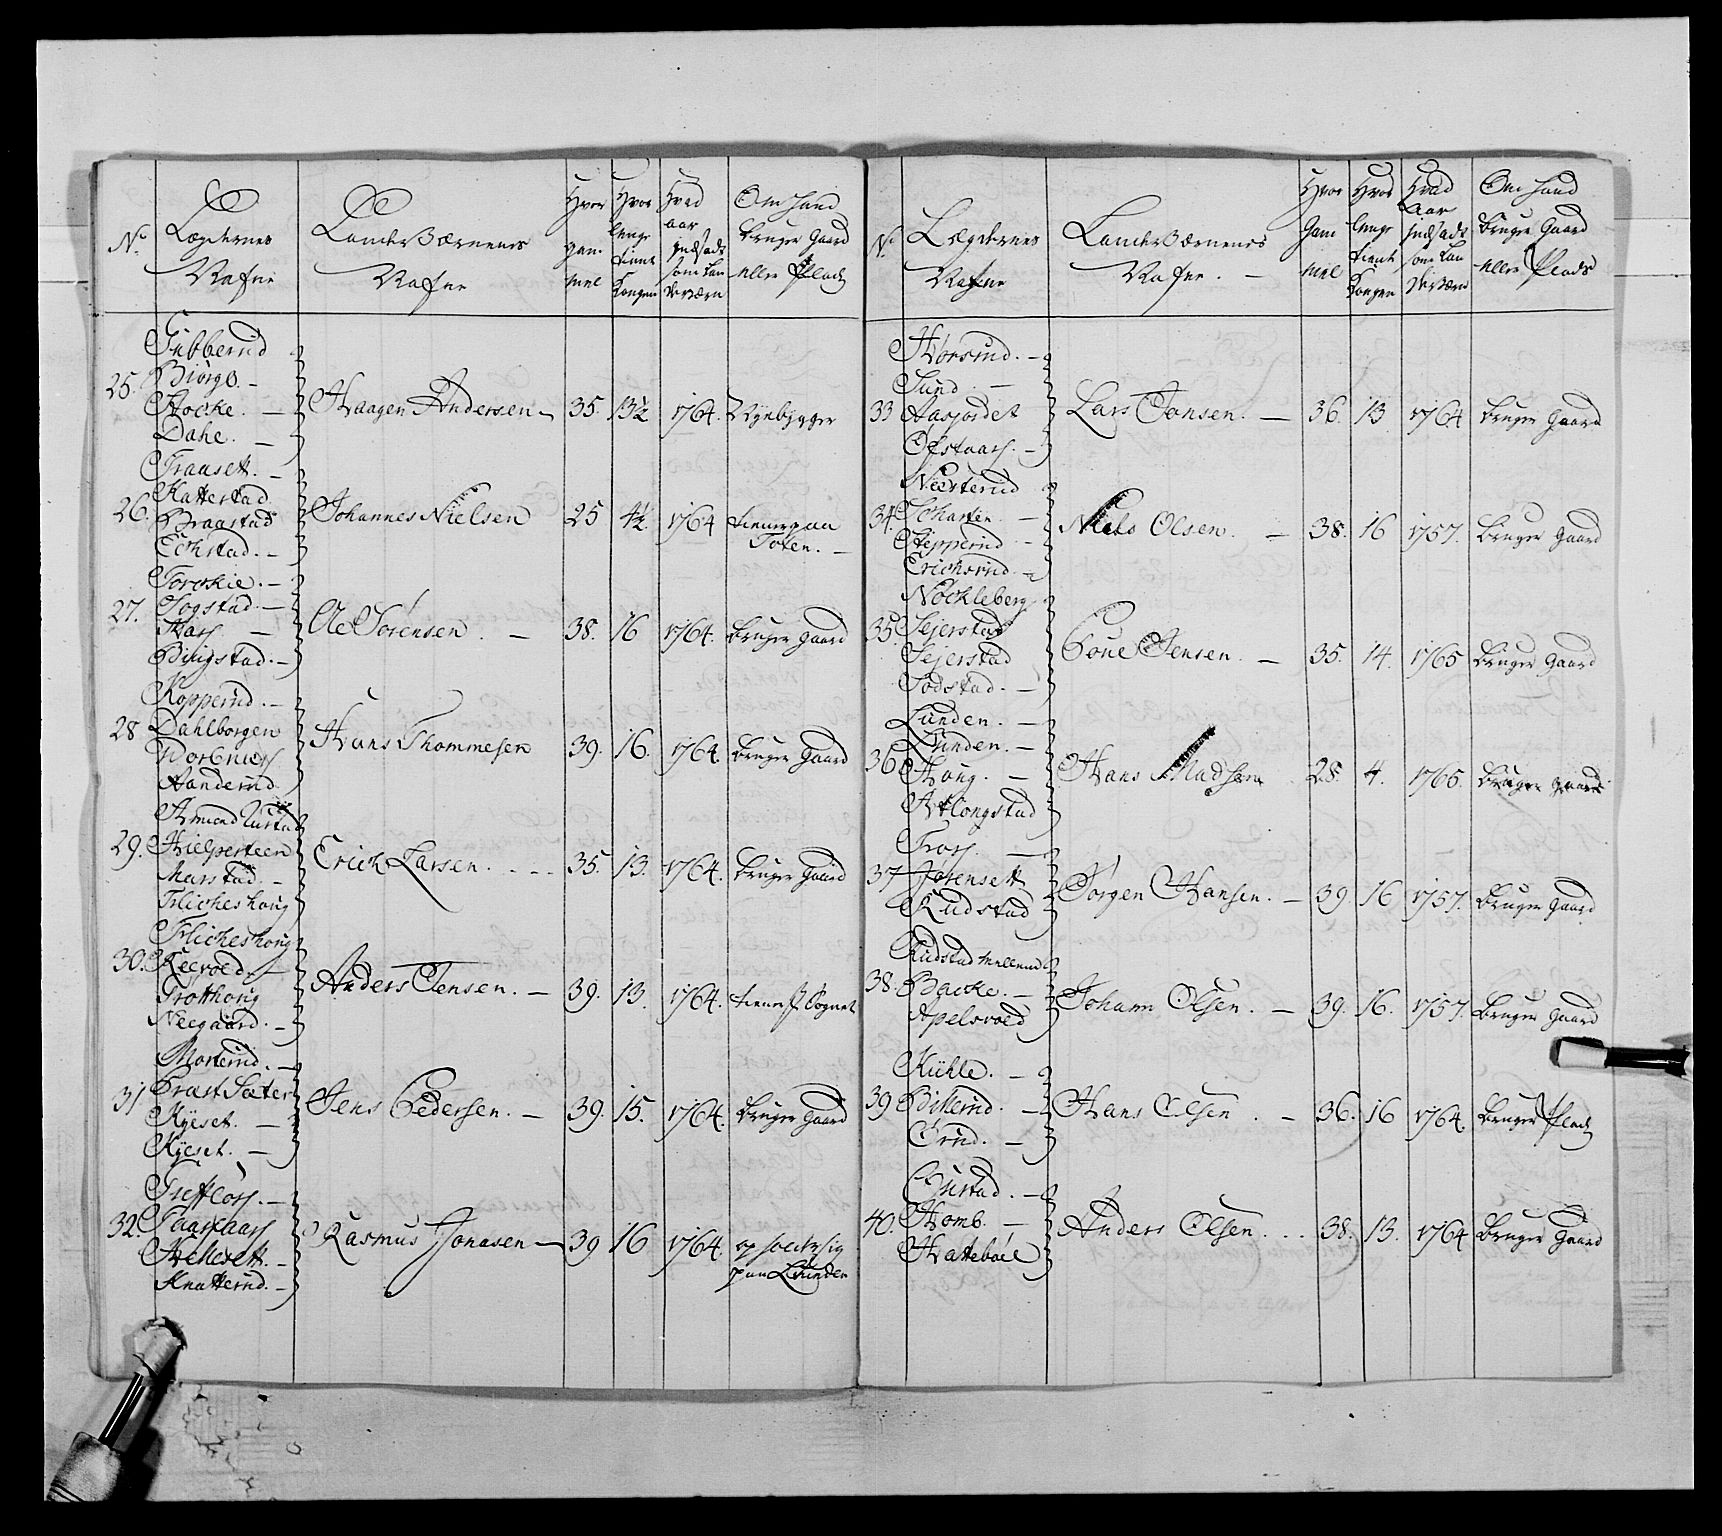 No.
Lægdernes
Nafne
Landeværnenes
Nafne
Hvor
gam
mel
Hvor
lenge
tient
Kongen
Hvad
aar
indsadt
som Lan
deværn
Om hand
bruger Gaard
eller Plads
Tubberud
25. Biörge.
Stocke.
Dahe.
Haagen Andersen 35. 13½ 1764. Nyebygger
Trauset.
26. Kattestad
Braastad
Eckstad.
Johannes Nielsen 25 4½ 1764 tiener paa
Toten.
Torckie.
27. Sogstad.
Skars
Biugstad.
Ole Sörensen. 38. 16 1764. bruger gaard
Kopperud.
28 Dahlborgen
Aanderud
Hans Thommesen 39. 16. 1764. bruger Gaard
Amund Rustad
29. Hielpesteen
Marstad.
Flicheshoug
Erich Larsen. 35. 13. 1764. bruger Gaard
Flicheshoug
30. Keevold.
Trotthoug
Neegaard.
Anders Jensen. 39. 13. 1764. tiener i Sognet
Morterud.
31 Præst Sæter
Kyeset.
Kyeset.
Jens Pedersen. 39. 15. 1764. bruger Gaard
32.
Knatterud.
Rasmus Jonasen 39 16 1764. opholder sig
paa Lunden
No.
Lægdernes
Nafne
Landeværnenes
Nafne.
Hvor
Gam
mel
Hvor
lenge
tient
Kongen
Hvad
Aar
indsadt
som Lan
deværn
Om hand
bruger Gaard
eller Plads
Horsrud.
Sund.
33 Aasjordet
Öfstaas.
Lars Jonsen. 36. 13 1764 bruger Gaard
Neesterud
34. Scharten.
Stepperud
Erichsrud.
Niels Olsen. 38. 16 1757. bruger Gaard
Nöckleberg
35. Sejerstad
Sejerstad
Sodstad.
Poue Jensen. 35. 14. 1765 bruger Gaard
Lunden.
Lunden.
36. Houg.
Alongstad
Hans Madsen 28. 4. 1765. bruger gaard
37 Jörenset
Rudstad
Jörgen Hansen. 39. 16 1757. bruger Gaard
Rudstad mellem
38. Backe.
Apelsvold
Johann Olsen. 39. 16. 1757. bruger Gaard
Kühle.
39 Bikerud.
Örud.
Hans Olsen. 36. 16 1764. bruger Plads
Gustad.
40. Homb.
Hatteböel
Anders Olsen. 38. 13. 1764 bruger Gaard